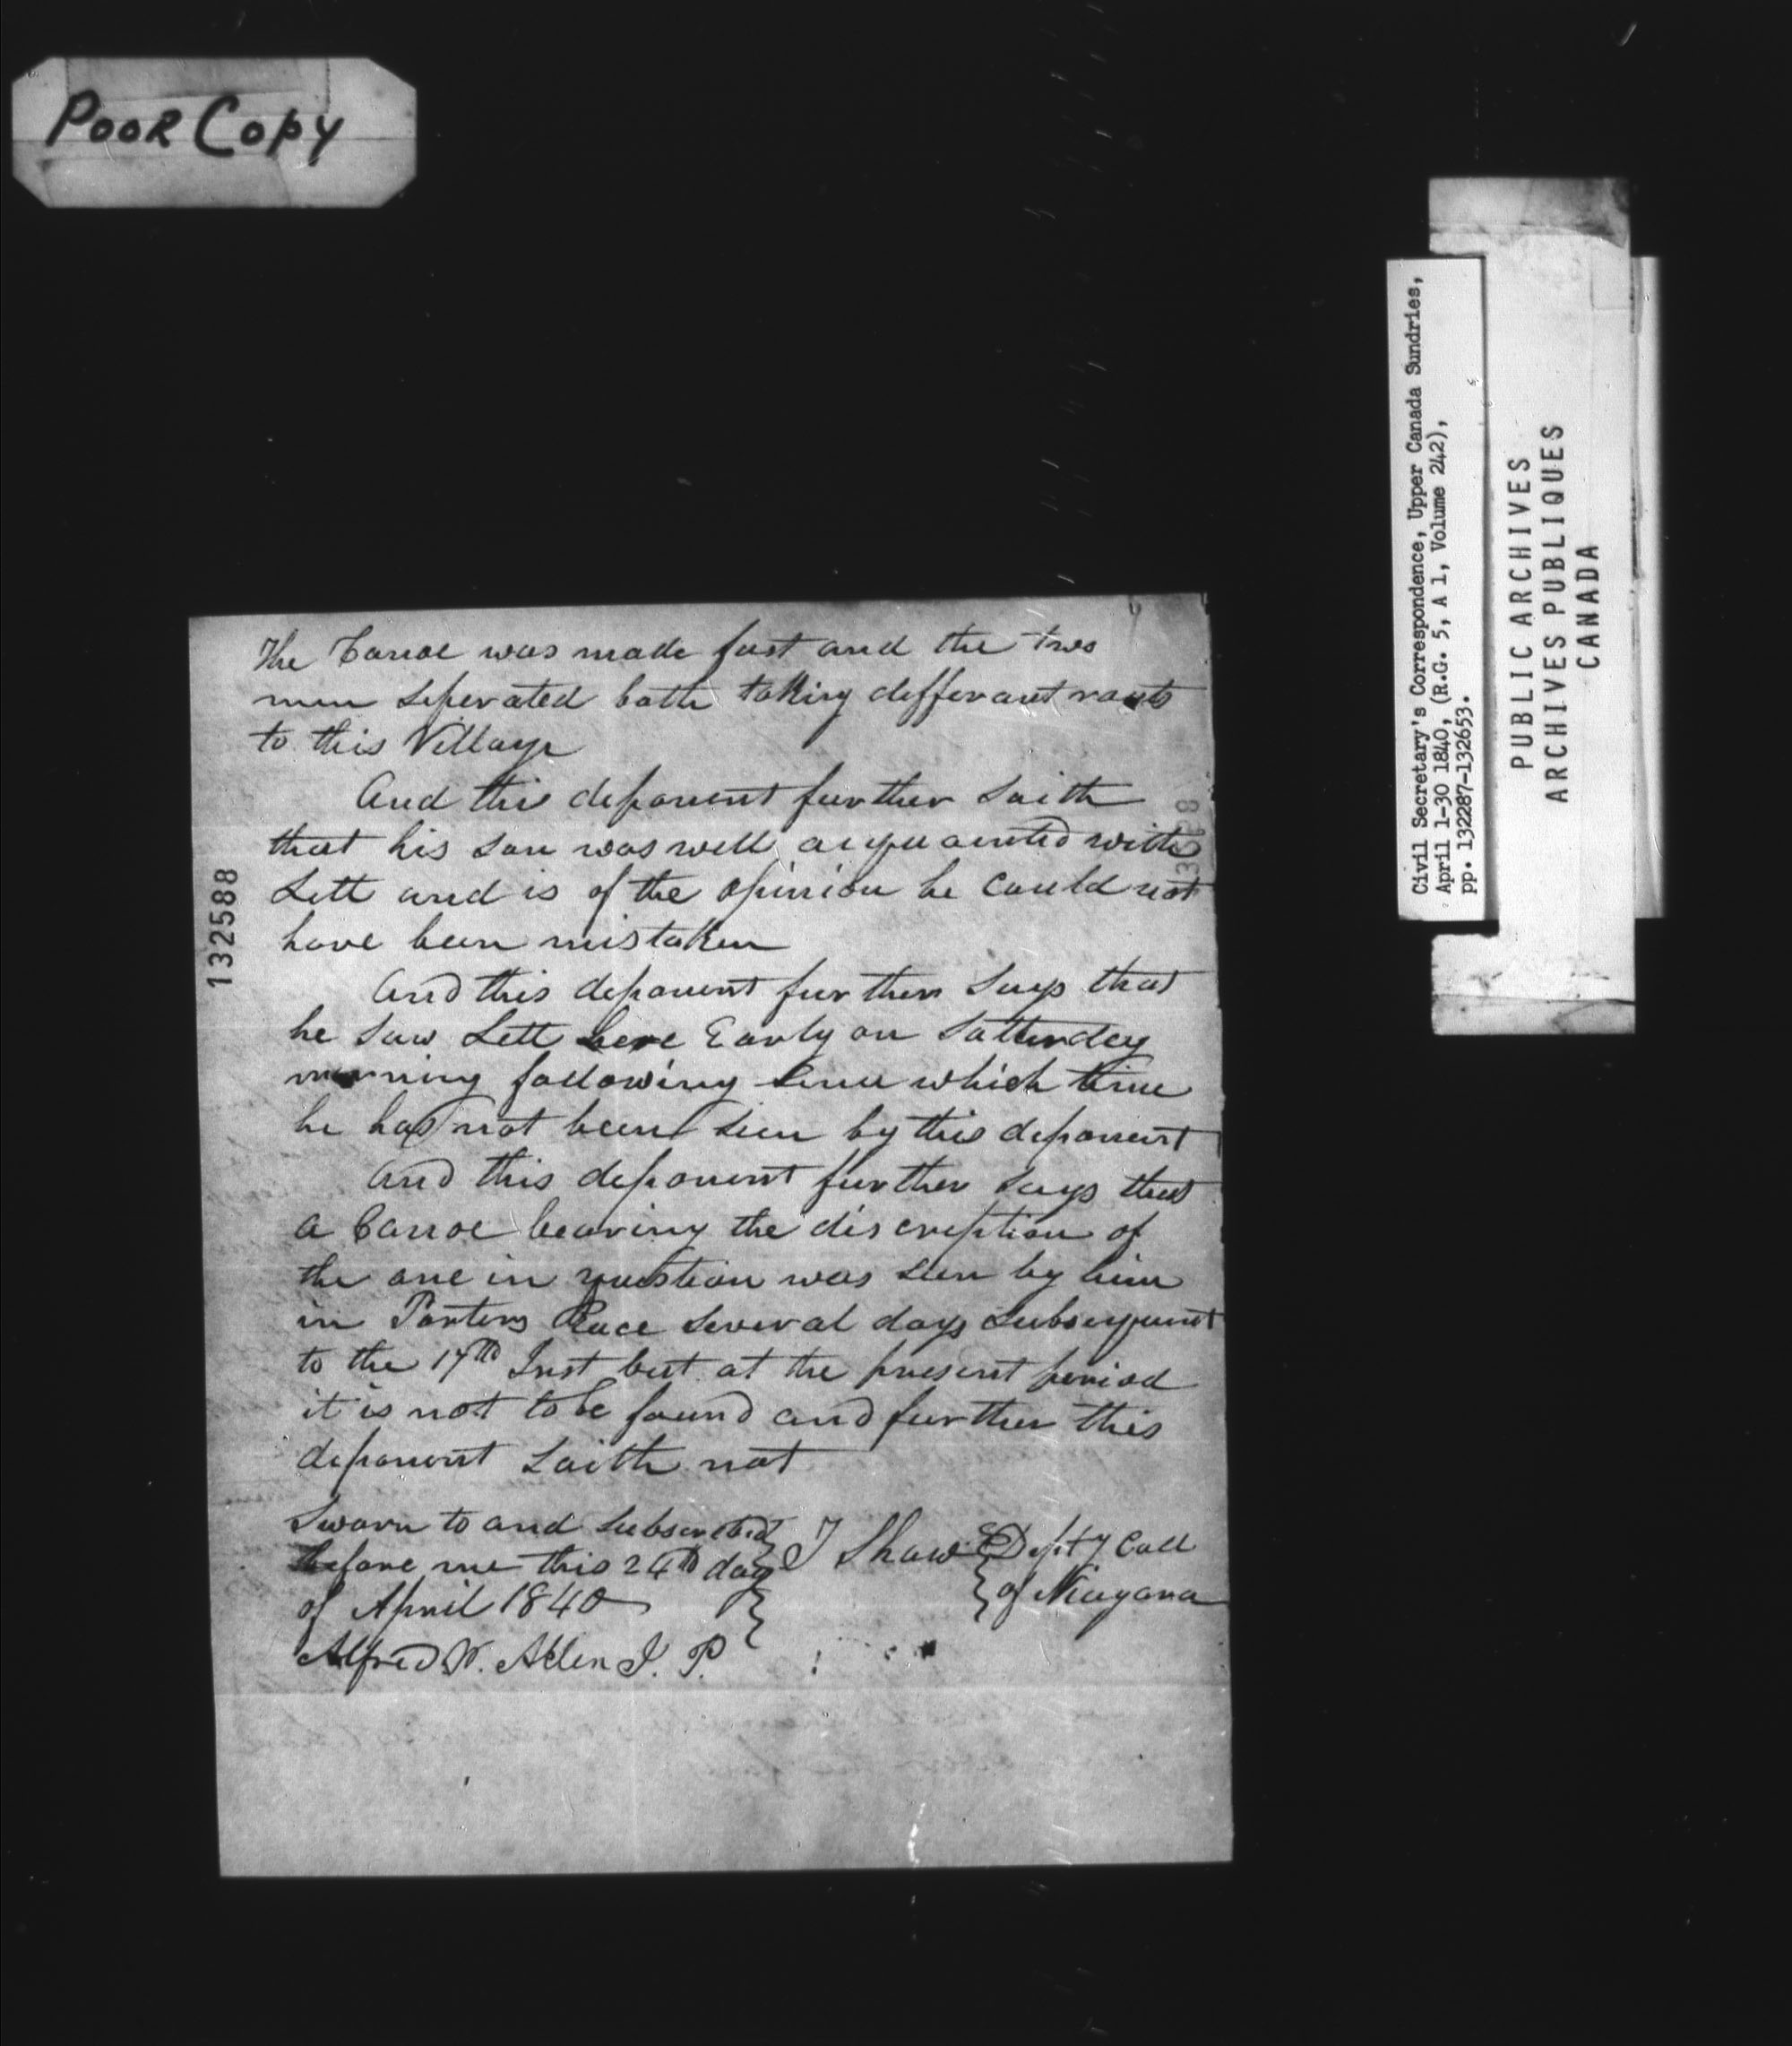 POOR COPY
The Canoe was made fast and the two
men seperated both taking differant routs
to this Village
And this deponent further saith
that his son was well acquainted with
Lett and is of the opinion he could not
have been mistaken
And this deponent further says that
he saw Lett here Early on Satturday
morning following since which time
he has not been seen by this deponent
And this deponent further says that
a Canoe bearing the discreption of
the one in question was seen by him
in Porters Race several days subsequent
to the 17th Inst but at the present period
it is not to be found and further this
deponent saith not
Sworn to and subscribed
before me this 24th day
of April 1840
Alfred W. Allen J. P.
I Shaw Depty Coll
of Niagara
132588
Civil Secretary's Correspondence, Upper Canada Sundries,
April 1-30 1840, (R.G. 5, A 1, Volume 242),
pp. 132287-132653.
PUBLIC ARCHIVES
ARCHIVES PUBLIQUES
CANADA